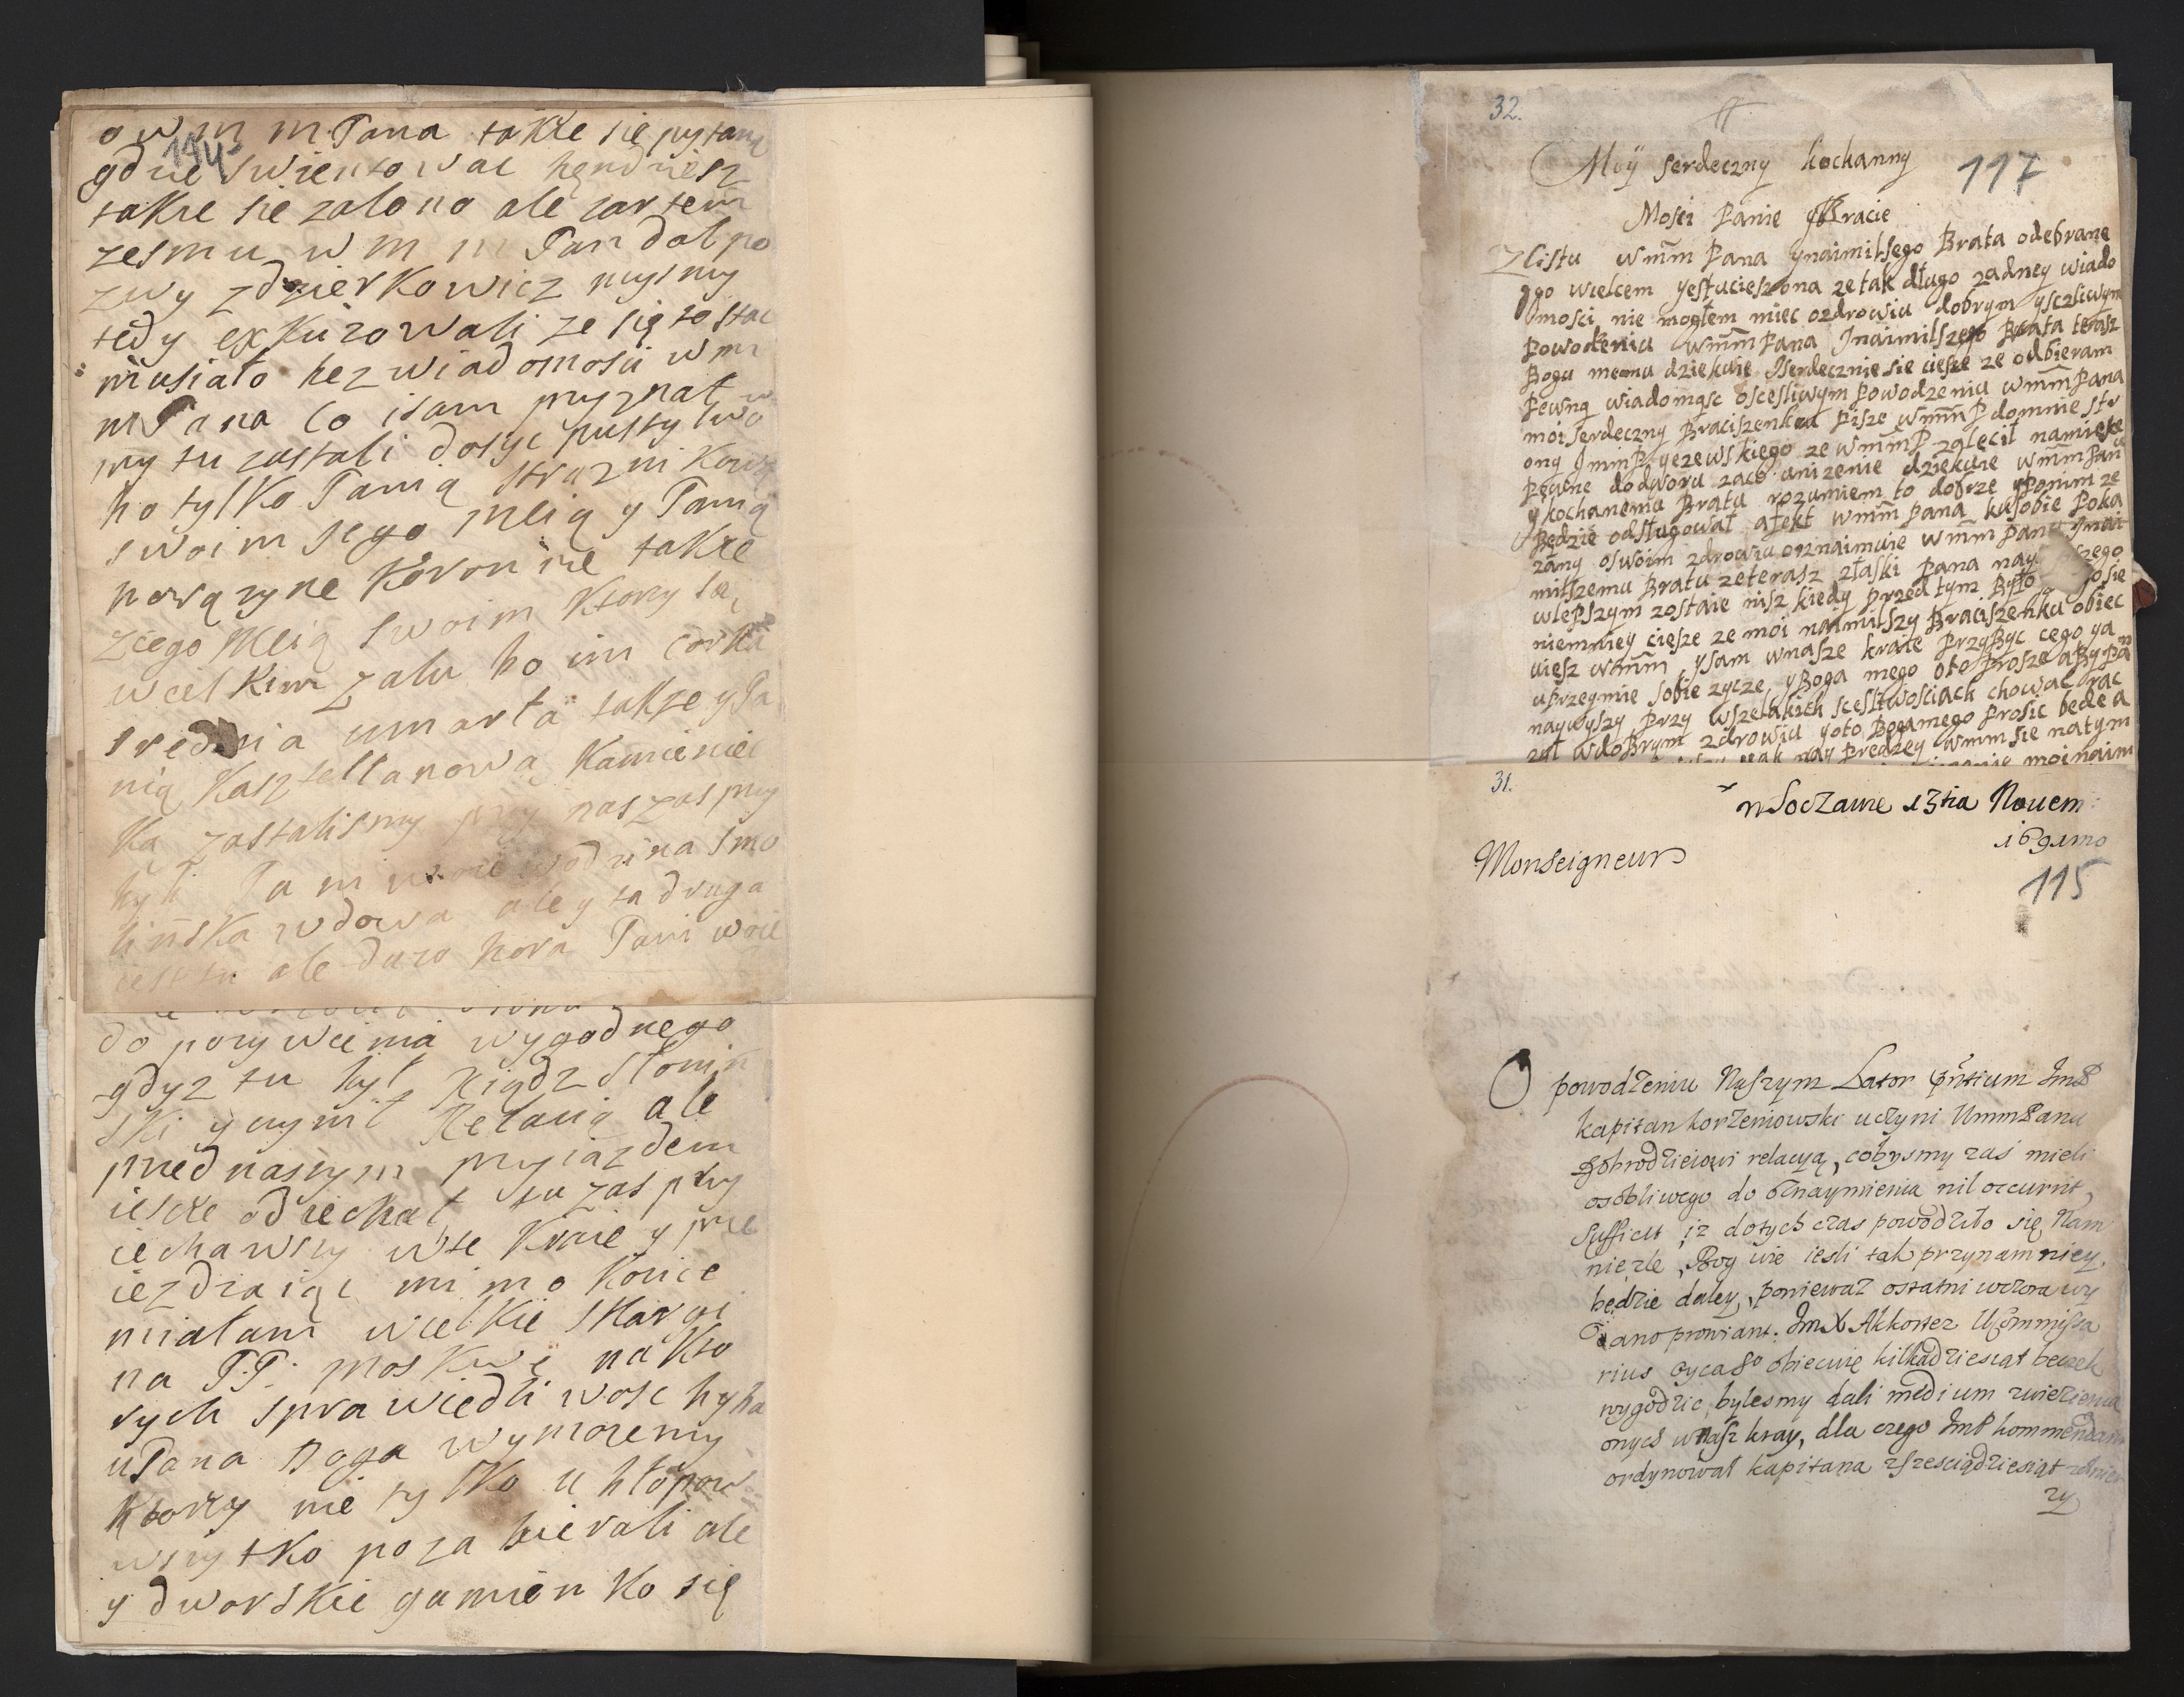 o w m m Pana takze sie pytano
194
gdzie swientowac hendziesz
takze sie zalono ale zartem
zesmu w m m Pan dal po
zwy zdzierkowicz mysmy
tedy exkuzowali ze się zostac
musiało bez wiadomosci w m
m Pana co isam przyznał
my tu zastali dosyc pustytwo
bo tylko Panią straznikową
swoim jego Mcią y Panią
horązyne Koronne takze
zjego Mcią swoim Ktorzy są
wcelkim zalu bo im corka
srednia umarła takze y Pa
nią Kasztellanową Kamieniec
ką zastalismy przy nas zas przy
hyli Pani woiewodzina smo
linska wdowa ale y ta druga
iest tu ale duzo hora Pani woie
do pozywienia wygodnego
gdyz tu był Xiądz Słomin
ski y czynił Relacią ale
przed naszym przyiazdem
iescze odiechał tu zas przy
iechawszy wte kraie y prze
iezdzaiąc mimo Konice
miałam wielkie skargi
na P.P. moskwę na kto
rych sprawiedliwosc hyba
u Pana Boga wymozemy
ktorzy nie tylko u hłopow
wszytko pozabierali ale
y dworskie gumienko się
32.
Moÿ serdeczny kochanny
117
Mosci Panie Bracie
Z listu wmm Pana ynaimilsego Brata odebrane
go wielcem yestucieszona zetak długo zadney wiado
mosci nie mogłem miec ozdrowiu dobrym ysczliwym
powodeniu wmm Pana Jnaimilszego Brata teras
Bogu memu dziekuie Jserdecznie sie ciesze ze odbieram
pewną wiadomąsc oscesliwym powodzeniu wmm Pana
moi serdeczny Braciszenku pisze wmmP domnie str
ony JmmP yezewskiego ze wmmP zalecił namiesce
pewne dodworu zaco unizenie dziekuie wmm Pan
y kochanemu Bratu rozumiem to dobrze yponim ze
Będzie odsługował afekt wmm pana kusobie poka
zany oswoim zdrowiu oznaimuie wmm Panu Jnai
milszemu Bratu zeterasz złaski pana nay szego
wlepszym zostaie nisz kiedy przedtym Było osie
niemniey ciesze ze moi naimilszy Braciszenku obiec
uiesz wmm ysam wnasze kraie przyByc cego ya
uprzeymie sobie zycze yBoga mego oto prosze aBy pan
naywyszy przy wszelakich scesliwosciach chowac rac
zył wdoBrym zdrowiu yoto Bogamego prosic bede a
yak nay predzey wmm sie natym
moi naim
31.
w Soczawie 13tia Nouem:
1691mo
Monseigneur
115
O powodzeniu Naszym Lator pntium ImP
kapitan korzeniowski uczyni WmmPanu
Dobrodzieiowi relacyą, cobysmy zas mieli
osobliwego do oznaymienia nil occurrit,
sufficit, iz dotych czas powodziło się Nam
niezle, Bog wie iesli tak przynamniey
będzie daley, poniewaz ostatni wczora wy
dano prowiant. ImX Akkorter Commissa
rius oycago obiecuię kilkadziesiąt beczek
wygodzic, bylesmy dali medium zwiezienia
onych w nasz kray, dla czego ImP kommendant
ordynował kapitana zszesciądziesiąt zołnier
zy